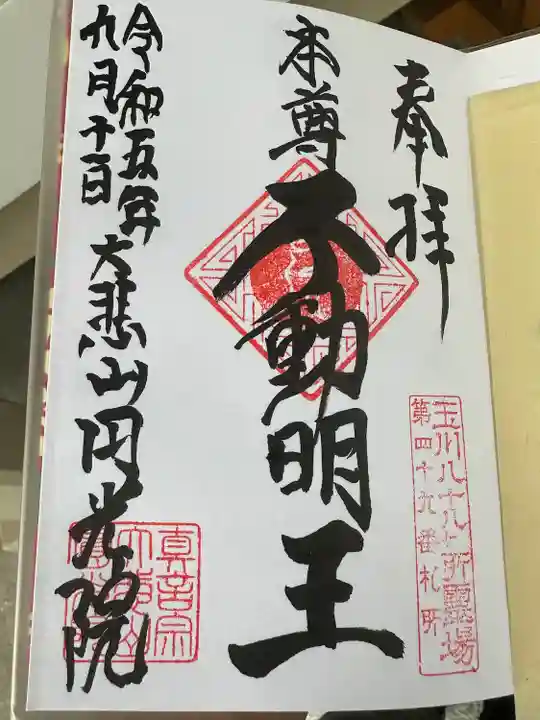 奉拝
玉川八十八ヶ所霊場
第四十九番札所
本尊 不動明王
令和五年
九月十一日
大悲山円光院
真言宗